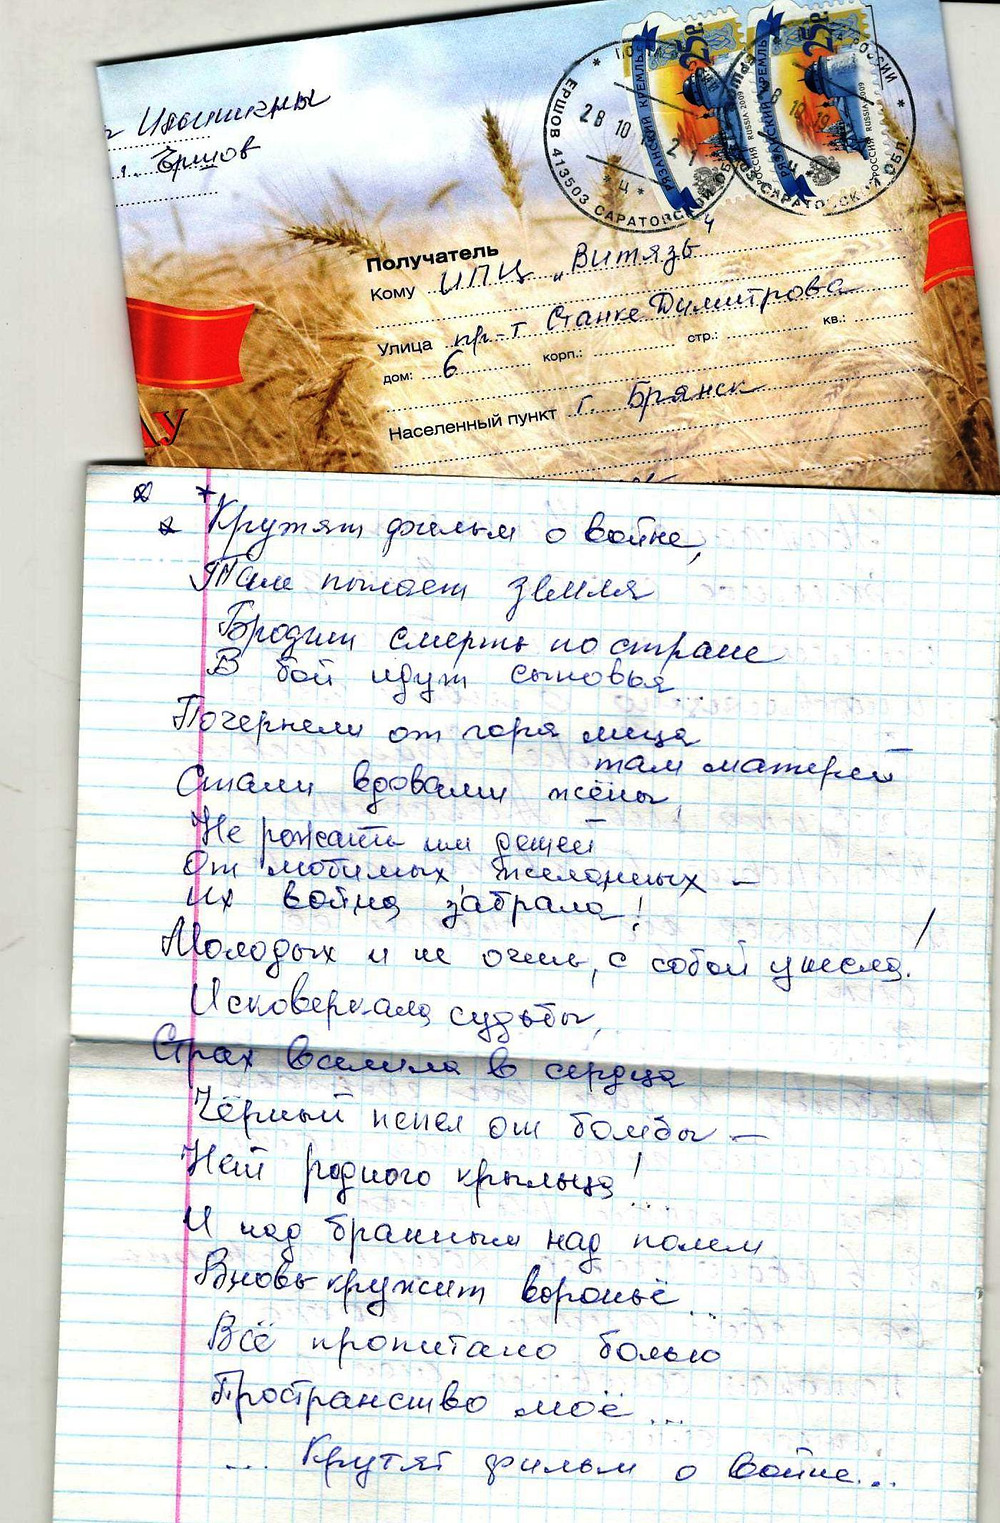 г Ершов
Получатель
Кому ИПЦ „Витязь"
Улица пр-т Станке Димитрова
дом: 6 корп.: стр.: кв.:
Населенный пункт г. Брянск
РЯЗАНСКИЙ КРЕМЛЬ 25р РОССИЯ RUSSIA·2009
РЯЗАНСКИЙ КРЕМЛЬ 25р РОССИЯ RUSSIA·2009
ЕРШОВ 413503 САРАТОВСКОЙ ОБЛ
28 10
* Ч *
Кружат фильм о войне,
Там пылает земля
Бродит смерть по стране
В бой идут сыновья
Почернели от горя лица
там матерей –
Стали вдовами жёны,
Не рожать им детей –
От любимых желанных –
их война забрала!
Молодых и не очень, с собой унесла.
Исковеркала судьбы,
Страх вселила в сердца
Чёрный пепел от бомбы –
Нет родного крыльца!...
И над бранным над полем
Вновь кружит вороньё...
Всё пропитано болью
Пространство моё ...
... Крутят фильм о войне...